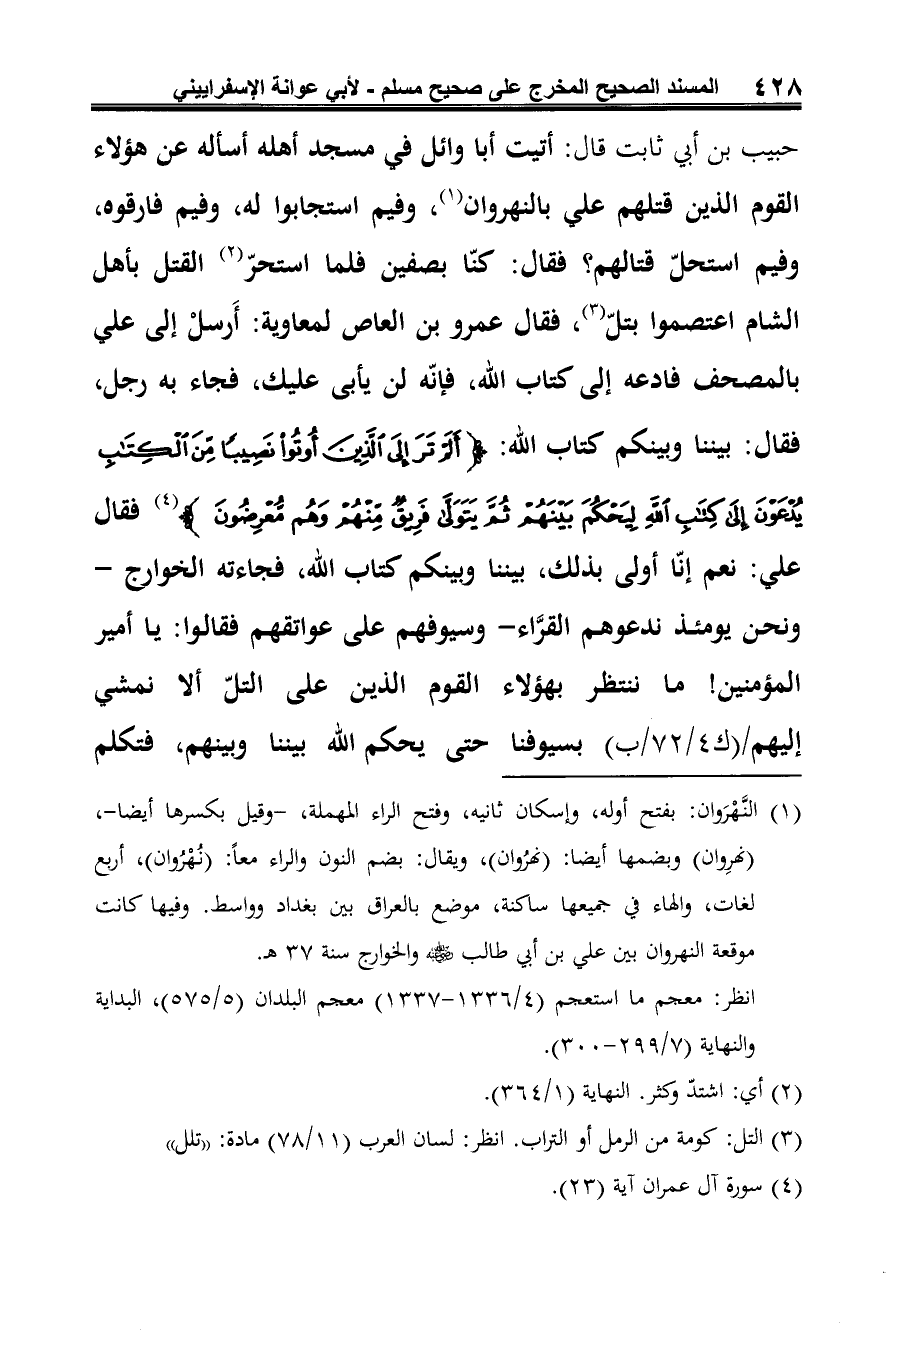 ٤٢٨ المسند الصحيح المخرج على صحيح مسلم - لأبي عوانة الإسفراييني
حبيب بن أبي ثابت قال: أتيت أبا وائل في مسجد أهله أسأله عن هؤلاء
القوم الذين قتلهم علي بالنهروان(١)، وفيم استجابوا له، وفيم فارقوه،
وفيم استحلّ قتالهم؟ فقال: كنّا بصفين فلما استحرّ(٢) القتل بأهل
الشام اعتصموا بتلّ(٣)، فقال عمرو بن العاص لمعاوية: أَرسلْ إلى علي
بالمصحف فادعه إلى كتاب الله، فإنّه لن يأبى عليك، فجاء به رجل،
فقال: بيننا وبينكم كتاب الله: ﴿أَلَمْ تَرَ إِلَى ٱلَّذِينَ أُوتُوا۟ نَصِيبًا مِّنَ ٱلْكِتَٰبِ
يُدْعَوْنَ إِلَىٰ كِتَٰبِ ٱللَّهِ لِيَحْكُمَ بَيْنَهُمْ ثُمَّ يَتَوَلَّىٰ فَرِيقٌ مِّنْهُمْ وَهُم مُّعْرِضُونَ﴾(٤) فقال
علي: نعم إنّا أولى بذلك، بيننا وبينكم كتاب الله، فجاءته الخوارج –
ونحن يومئذ ندعوهم القرَّاء– وسيوفهم على عواتقهم فقالوا: يا أمير
المؤمنين! ما ننتظر بهؤلاء القوم الذين على التلّ ألا نمشي
إليهم/(ك٧٢/٤/ب) بسيوفنا حتى يحكم الله بيننا وبينهم، فتكلم
(١) النَّهْرَوان: بفتح أوله، وإسكان ثانيه، وفتح الراء المهملة، –وقيل بكسرها أيضا–،
(نهرِوان) وبضمها أيضا: (نهرُوان)، ويقال: بضم النون والراء معاً: (نُهْرُوان)، أربع
لغات، والهاء في جميعها ساكنة، موضع بالعراق بين بغداد وواسط. وفيها كانت
موقعة النهروان بين علي بن أبي طالب ﵁ والخوارج سنة ٣٧ هـ.
انظر: معجم ما استعجم (١٣٣٦/٤–١٣٣٧) معجم البلدان (٥٧٥/٥)، البداية
والنهاية (٢٩٩/٧–٣٠٠).
(٢) أي: اشتدّ وكثر. النهاية (٣٦٤/١).
(٣) التل: كومة من الرمل أو التراب. انظر: لسان العرب (٧٨/١١) مادة: «تلل»
(٤) سورة آل عمران آية (٢٣).